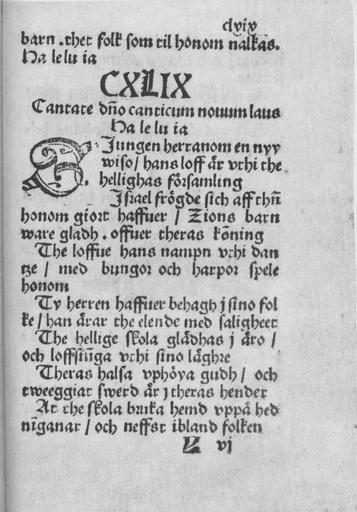 clyix
barn .thet folk som til honom nalkas.
Ha le lu ia
CXLIX
Cantate dño canticum nouum laus
Ha le lu ia
SJungen herranom en nyy
wiso / hans loff är vthi the
hellighas församling
Jsrael frögde sich aff thñ
honom giort haffuer / Zions barn
ware gladh . offuer theras köning
The loffue hans nampn vthi dan
tze / med bungor och harpor spele
honom
Ty herren haffuer behagh j sino fol
ke / han ärar the elende med saligheet
The hellige skola glädhas j äro /
och loffsiũga vthi sino läghre
Theras halsa vphöya gudh / och
tweeggiat swerd är j theras hender
At the skola bruka hemd vppå hed
nĩganar / och neffst ibland folken
vj